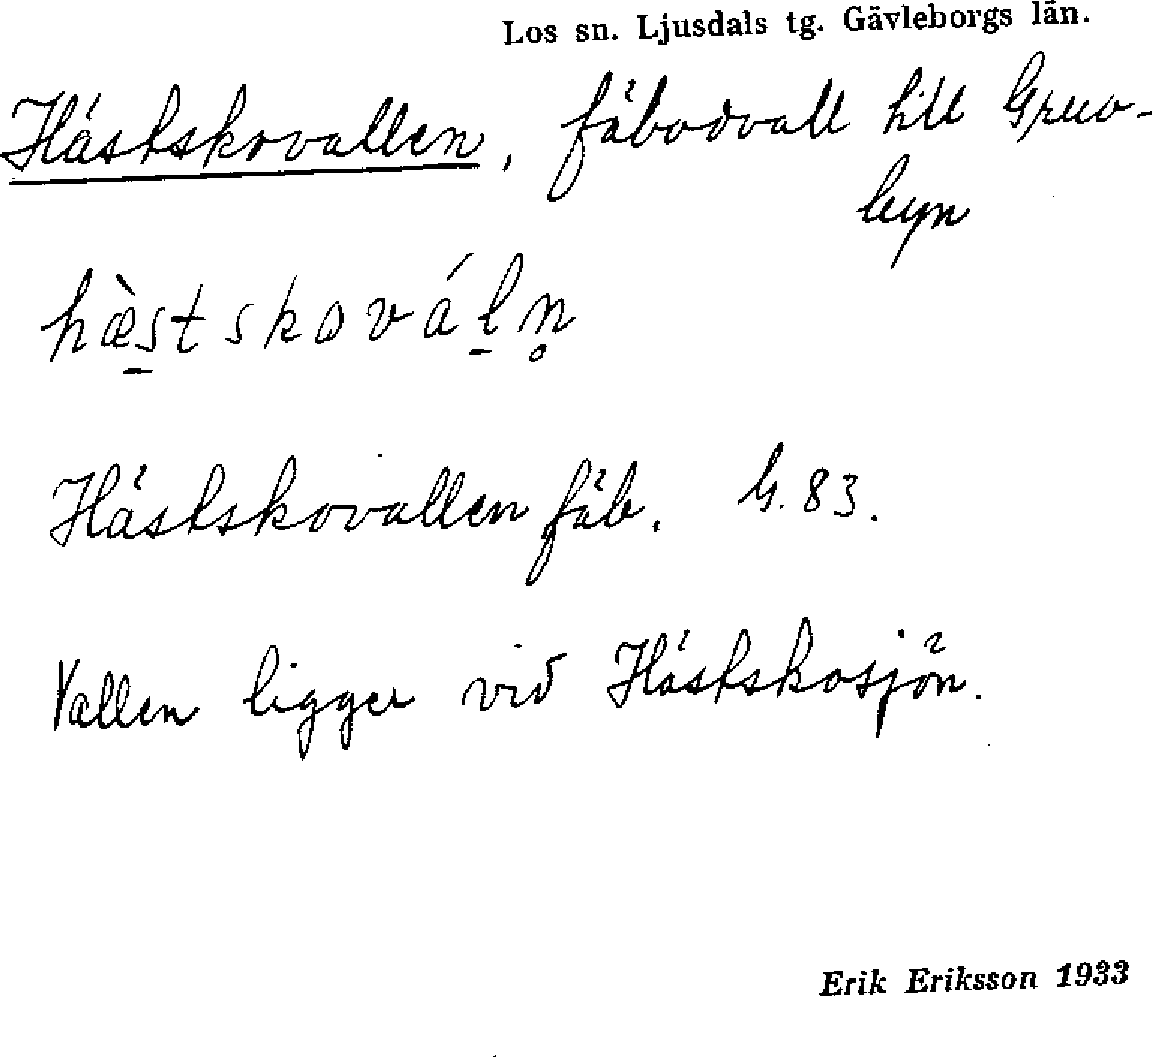 Los sn. Ljusdals tg. Gävleborgs län.
Hästskovallen, fäbodvall till Gruv-
byn
hæ̀s̲tskovál̲n̥
Hästskovallen fäb. G. 83.
Vallen ligger vid Hästskosjön.
Erik Eriksson 1933